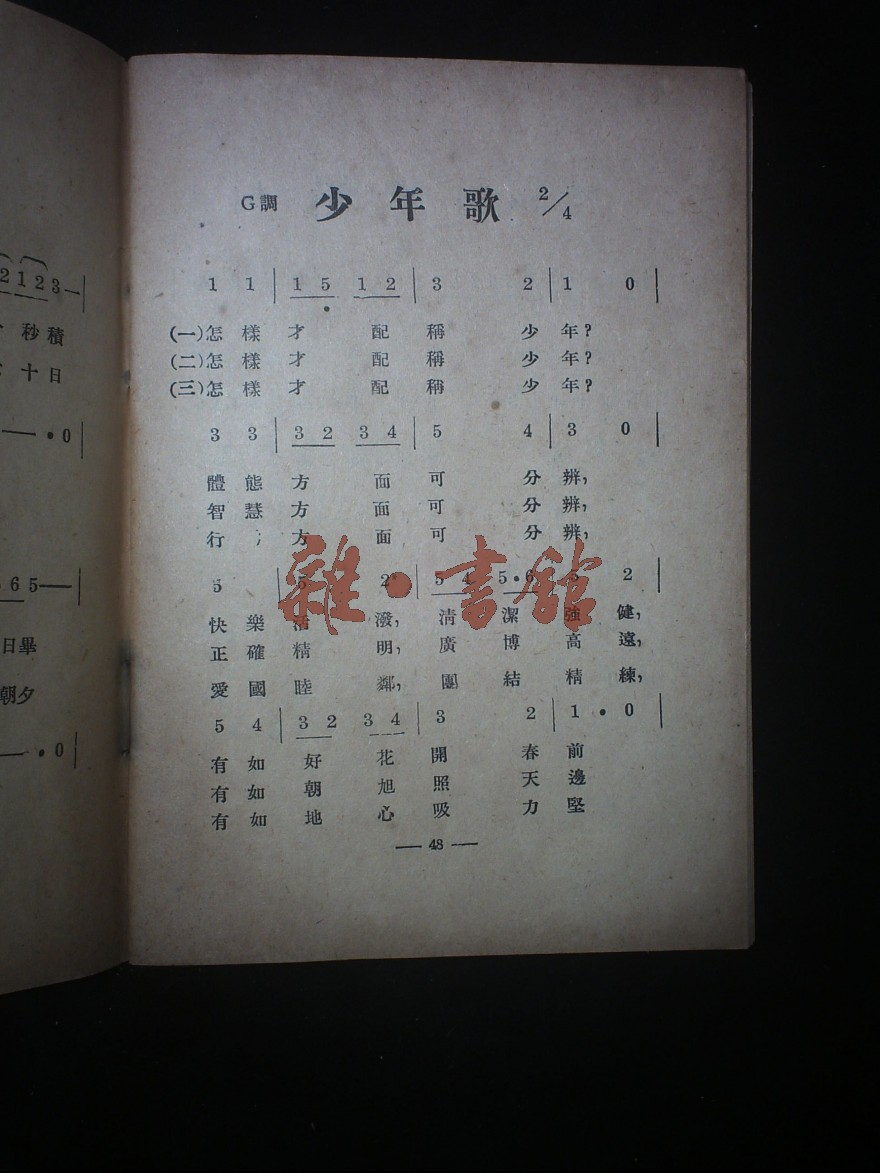 G調 少年歌 2/4
1 1 | 1 5 1 2 | 3 2 | 1 0 |
(一)怎樣才配稱少年?
(二)怎樣才配稱少年?
(三)怎樣才配稱少年?
3 3 | 3 2 3 4 | 5 4 | 3 0 |
體態方面可分辨,
智慧方面可分辨,
行 方面可分辨,
5 | 5 2 | 5 4 5·6 5 2
快樂活潑,清潔強健,
正確精明,廣博高遠,
愛國睦鄰,團結精練,
5 4 | 3 2 3 4 | 3 2 | 1 · 0 |
有如好花開春前
有如朝旭照天邊
有如地心吸力堅
— 48 —
2 1 2 3 — |
秒積
十日
— · 0 |
6 5 — |
日畢
朝夕
— · 0 |
雜·書館